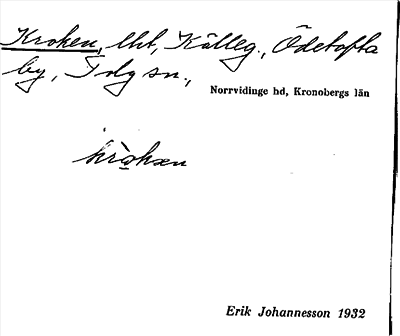 Kroken, lht, Källeg., Ödetofta
by, Tolg sn.,
Norrvidinge hd, Kronobergs län
krọkən
Erik Johannesson 1932